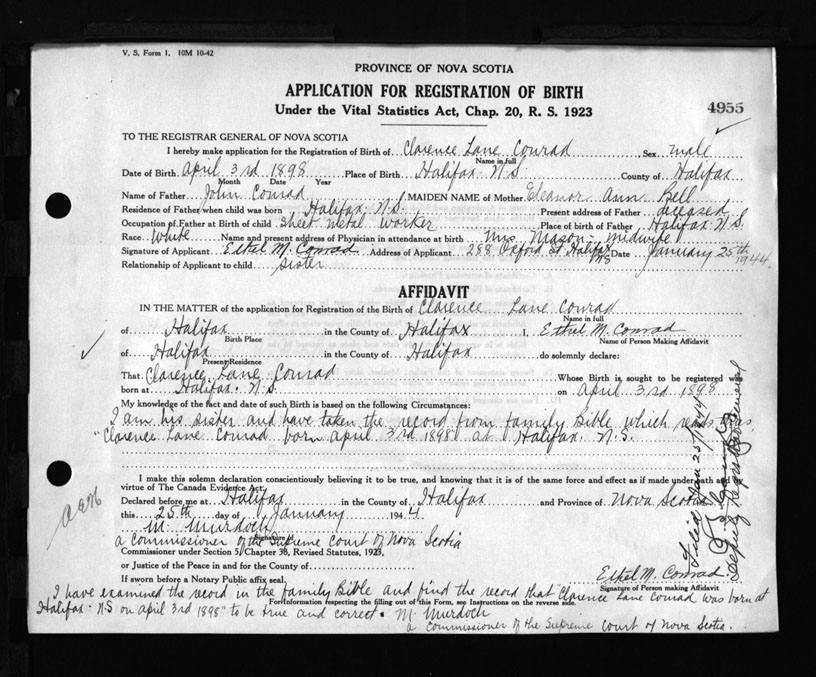 V. S. Form 1. 10M 10-42
PROVINCE OF NOVA SCOTIA
APPLICATION FOR REGISTRATION OF BIRTH
4955
Under the Vital Statistics Act, Chap. 20, R. S. 1923
TO THE REGISTRAR GENERAL OF NOVA SCOTIA
I hereby make application for the Registration of Birth of Clarence Lane Conrad Sex male
Name in full
Date of Birth April 3rd 1898 Place of Birth Halifax N.S. County of Halifax
Month Date Year
Name of Father John Conrad MAIDEN NAME of Mother Eleanor Ann Bell
Residence of Father when child was born Halifax N.S. Present address of Father deceased
Occupation of Father at Birth of child Sheet metal worker Place of birth of Father Halifax N.S.
Race White Name and present address of Physician in attendance at birth Mrs Mason - midwife
Signature of Applicant Ethel M. Conrad Address of Applicant 288 Oxford St Halifax NS Date January 25th 1944
Relationship of Applicant to child sister
AFFIDAVIT
IN THE MATTER of the application for Registration of the Birth of Clarence Lane Conrad
Name in full
of Halifax in the County of Halifax I, Ethel M. Conrad
Birth Place Name of Person Making Affidavit
of Halifax in the County of Halifax do solemnly declare:
Present Residence
That Clarence Lane Conrad Whose Birth is sought to be registered was
born at Halifax. N.S. on April 3rd 1898
My knowledge of the fact and date of such Birth is based on the following Circumstances:
I am his sister and have taken the record from family Bible which reads thus,
"Clarence Lane Conrad born April 3rd 1898 at Halifax. N.S.
I make this solemn declaration conscientiously believing it to be true, and knowing that it is of the same force and effect as if made under oath and by
virtue of The Canada Evidence Act.
Declared before me at Halifax in the County of Halifax and Province of Nova Scotia
this 25th day of January 1944.
M. Murdoch
Signature of
a Commissioner of the Supreme Court of Nova Scotia
Commissioner under Section 5, Chapter 38, Revised Statutes, 1923,
or Justice of the Peace in and for the County of
If sworn before a Notary Public affix seal.
Ethel M. Conrad
Signature of Person making Affidavit
I have examined the record in the family Bible and find the record that "Clarence Lane Conrad was born at
For Information respecting the filling out of this Form, see Instructions on the reverse side.
Halifax. N.S on April 3rd 1898" to be true and correct. M. Murdoch
a Commissioner of the Supreme Court of Nova Scotia.
Filed Jan 25/1944
Deputy Registrar General